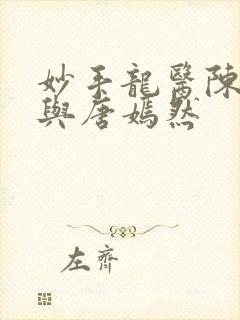 妙手龍醫陳
與唐嫣然
左齊